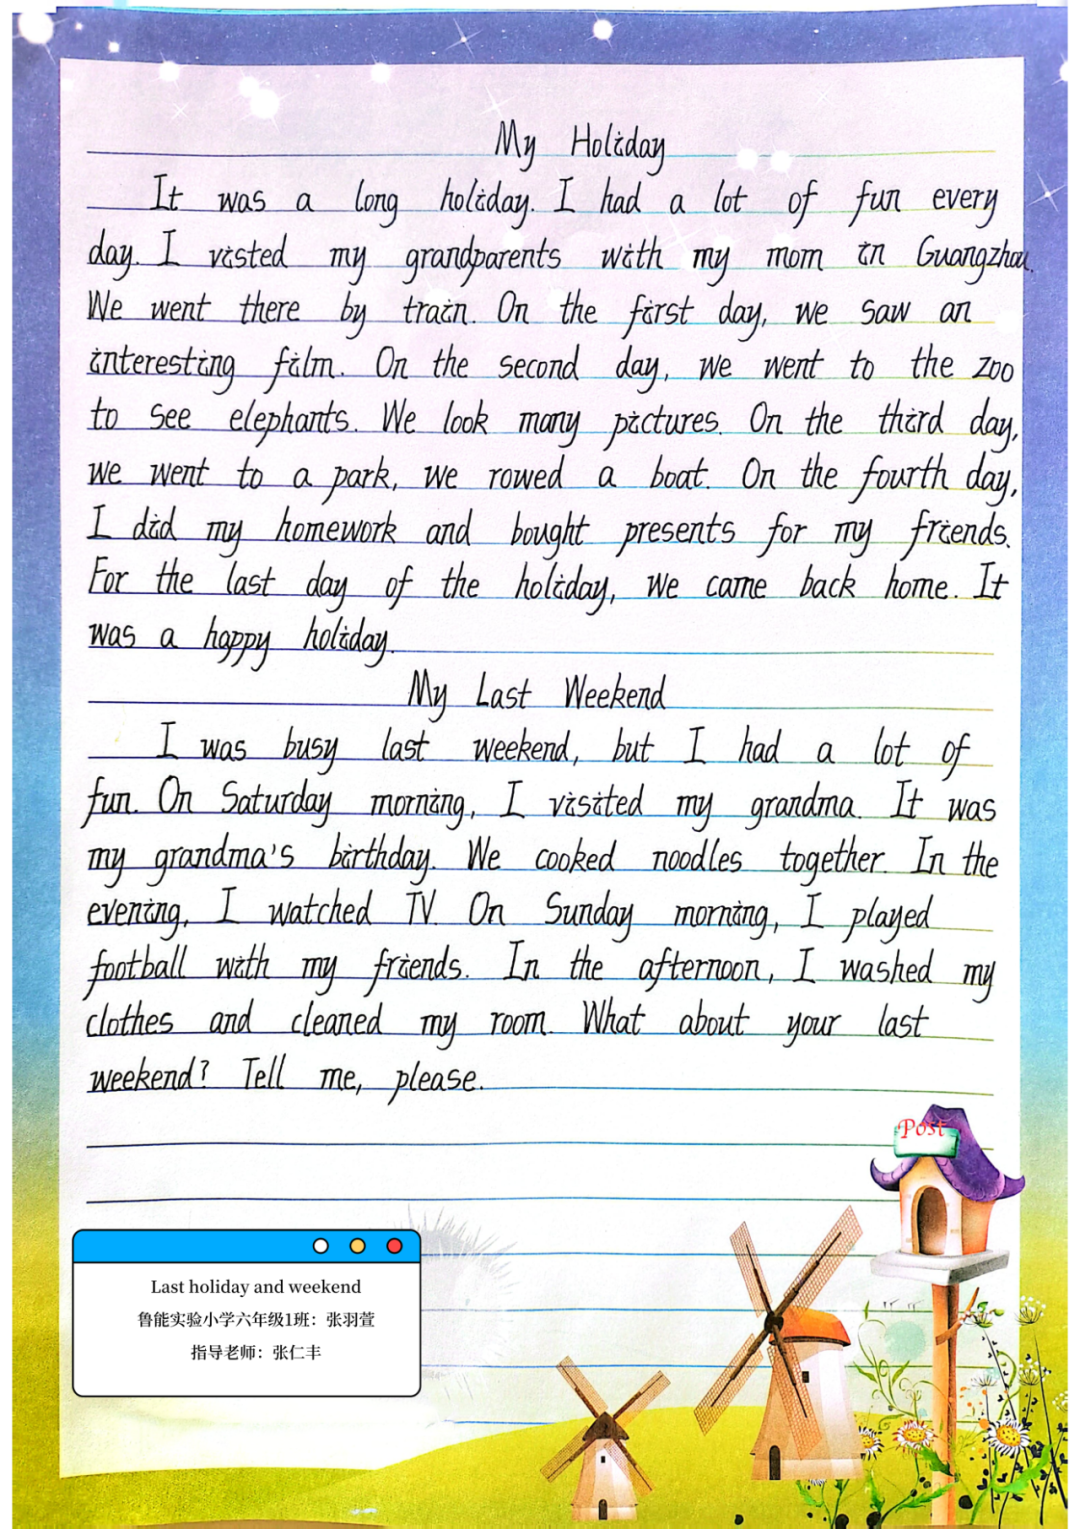 My Holiday
It was a long holiday. I had a lot of fun every
day. I visted my grandparents with my mom in Guangzhou.
We went there by train. On the first day, we saw an
interesting film. On the second day, we went to the zoo
to see elephants. We look many pictures. On the third day,
we went to a park, we rowed a boat. On the fourth day,
I did my homework and bought presents for my friends.
For the last day of the holiday, we came back home. It
was a happy holiday.
My Last Weekend
I was busy last weekend, but I had a lot of
fun. On Saturday morning, I visited my grandma. It was
my grandma's birthday. We cooked noodles together. In the
evening, I watched TV. On Sunday morning, I played
football with my friends. In the afternoon, I washed my
clothes and cleaned my room. What about your last
weekend? Tell me, please.
Post
Last holiday and weekend
鲁能实验小学六年级1班：张羽萱
指导老师：张仁丰